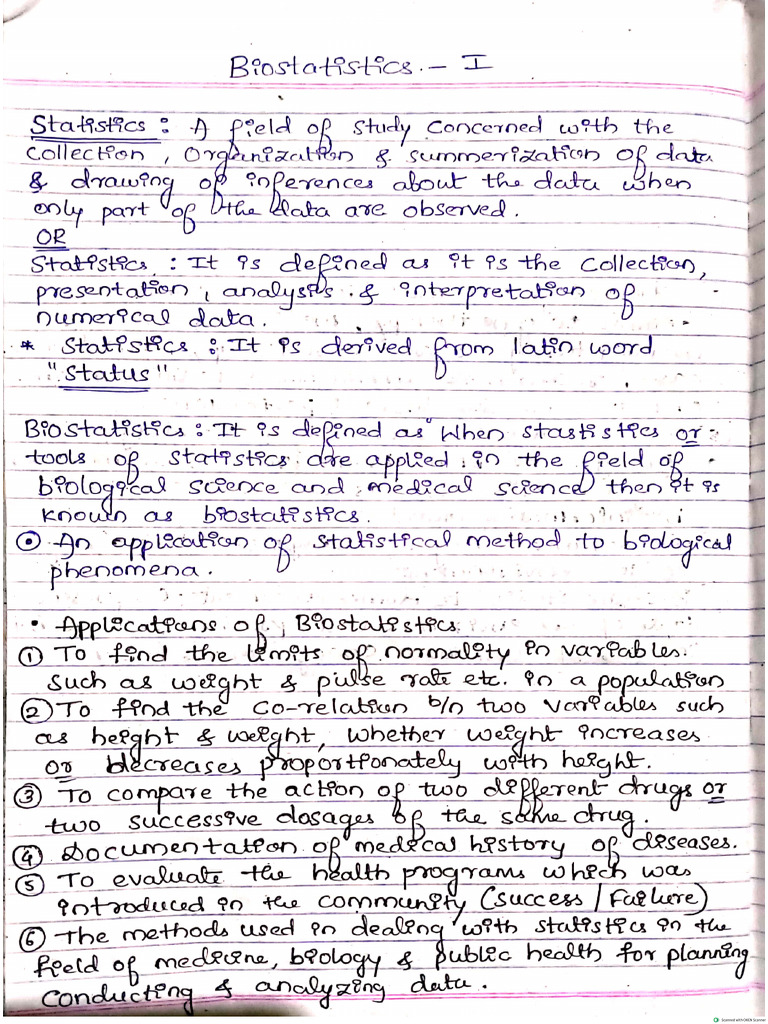 Biostatistics. - I
Statistics : A field of study concerned with the
collection, organization & summerization of data
& drawing of inferences about the data when
only part of the data are observed.
OR
Statistics : It is defined as it is the collection,
presentation, analysis & interpretation of
numerical data.
* Statistics : It is derived from latin word
"Status"
Biostatistics : It is defined as "When stastistics or
tools of statistics are applied in the field of
biological science and medical science then it is
known as biostatistics.
⊙ An application of statistical method to biological
phenomena.
• Applications of Biostatistics
① To find the limits of normality in variables.
such as weight & pulse rate etc. in a population
② To find the co-relation b/n two variables such
as height & weight, whether weight increases
or decreases proportionately with height.
③ To compare the action of two different drugs or
two successive dosages of the same drug.
④ Documentation of medical history of diseases.
⑤ To evaluate the health programs which was
introduced in the community (success / Failure)
⑥ The methods used in dealing with statistics in the
field of medicine, biology & public health for planning
conducting & analyzing data.
Scanned with OKEN Scanner